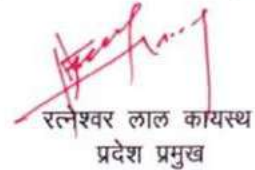 रत्नेश्वर लाल कायस्थ
प्रदेश प्रमुख